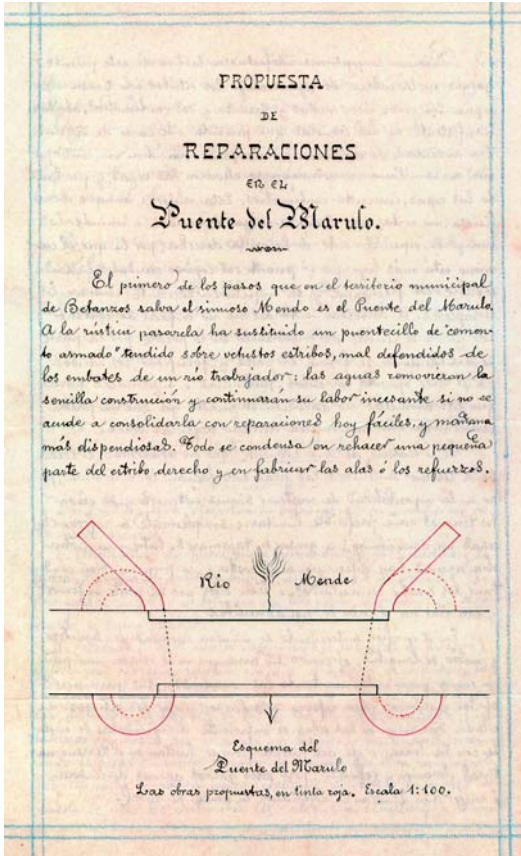 PROPUESTA
DE
REPARACIONES
EN EL
Puente del Marulo.
El primero de los pasos que en el territorio municipal
de Betanzos salva el sinuoso Mendo es el Puente del Marulo.
A la rústica pasarela ha sustituido un puentecillo de "cemen-
to armado" tendido sobre vetustos estribos, mal defendidos de
los embates de un río trabajador; las aguas removieron la
sencilla construcción y continuarán su labor incesante si no se
acude a consolidarla con reparaciones hoy fáciles, y mañana
más dispendiosas. Todo se condensa en rehacer una pequeña
parte del estribo derecho y en fabricar las alas ó los refuerzos.
Río Mende
Esquema del
Puente del Marulo
Las obras propuestas, en tinta roja. Escala 1:100.